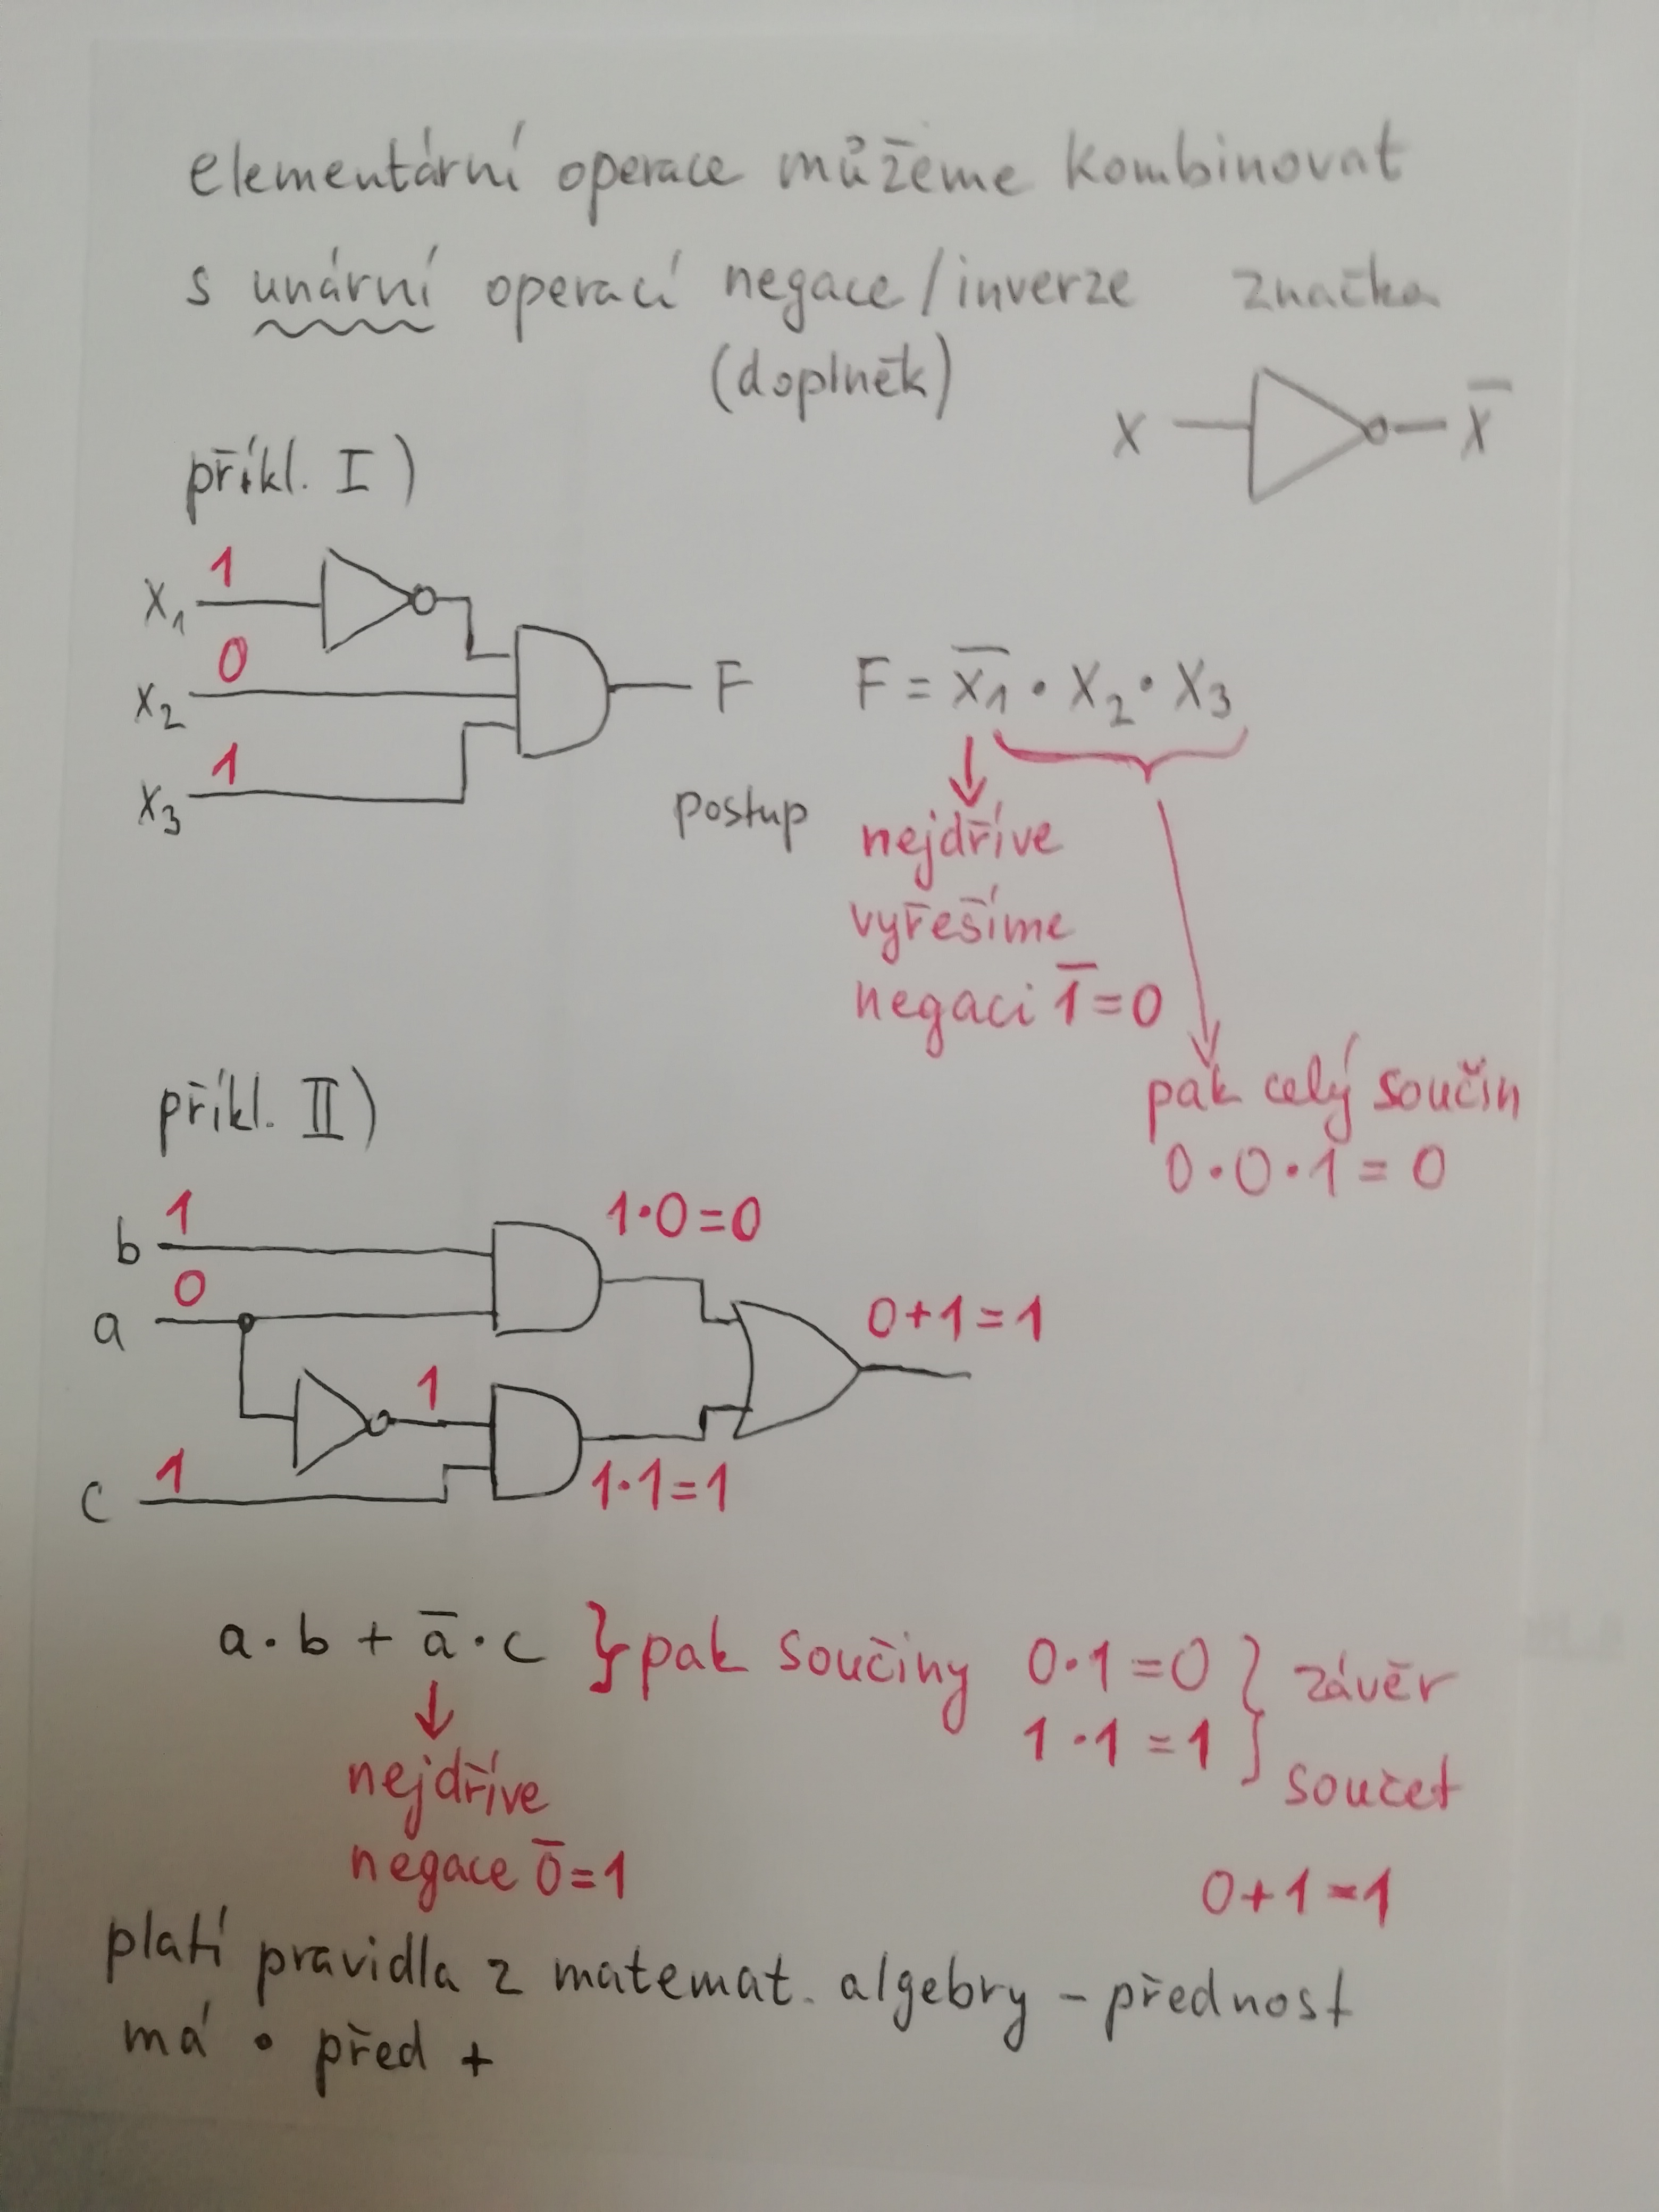 elementární operace můžeme kombinovat
s unární operací negace/inverze značka
(doplněk)
x x̅
příkl. I)
x₁ 1
x₂ 0
x₃ 1
F
F = x̅₁ • x₂ • x₃
postup
nejdříve
vyřešíme
negaci 1̅=0
pak celý součin
0•0•1=0
příkl. II)
b 1
a 0
1
c 1
1•0=0
1•1=1
0+1=1
a•b + a̅•c } pak součiny 0•1=0 } závěr
1•1=1 součet
nejdříve
negace 0̅=1
0+1=1
platí pravidla z matemat. algebry - přednost
má • před +